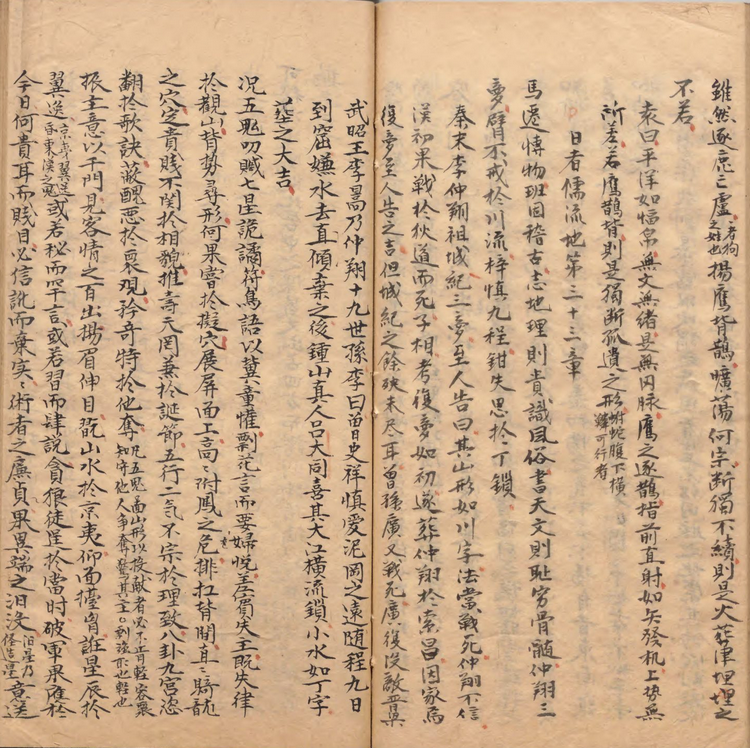 雖然逐忘亡盧考狗之姓也揚鷹背鵲曠蕩何宗斷獨不續則是火葬津埋埋之
不若
袁曰平洋如幅帛無文無緒是無內脉鷹之逐鵲指前直射如矢發机上势無
所差若鷹鵲背則是獨斷孤遺之形蚹蛇腹下橫鱗可行者
日者儒流地第三十三章
馬遷博物班固稽古志地理則貴識風俗書天文則耻穷骨髓仲翔三
夢臂不戒於川流梓慎九程鉗失思於丁鎖
秦末李仲翔祖城紀三夢至人告曰其山形如川字法當戰死仲翔不信
漢初果戰於狄道而死子相考復夢如初遂葬仲翔於索昌因家焉
復夢至人告之吉但城紀之餘殃未尽耳曾孫廣又戰死廣復没敵並具
武昭王李暠乃仲翔十九世孫李曰曾史祥慎愛泥岡之遠随程九日
到窟嫌水去直傾棄之後鍾山真人吕大同喜其大江横流鎖小水如丁字
塟之大吉
况五鬼叨贓七星詭譎符鳥語以冀童懽剽花言而要婦悦差罰失王既失律
於觀山背势尋形何果窨於擬穴展屏面上高高附鳳之危排扛背開直騎龍
之穴定貴賤不関於相貌推壽夭罔兼於誕節五行二气不宗於理致八卦九宮恣
翻於歌訣蔽醜惡於裏观矜奇特於他奪凡五鬼畐山形以投献者必不肯輕容裹知守他人争奪蟿其主到該亦也輕也
振主意以千門見客情之百出揚眉伸目翫山水於京夷仰面擡胷誑星辰於
翼送京房翼送香東漢之鬼或若秘而罕言或若習而肆說貪狼徒呈於當时破軍果應於
今日何貴耳而賤目必信訛而棄实实術者之廉貞果異端之汩没汩星乃怪吉星意送